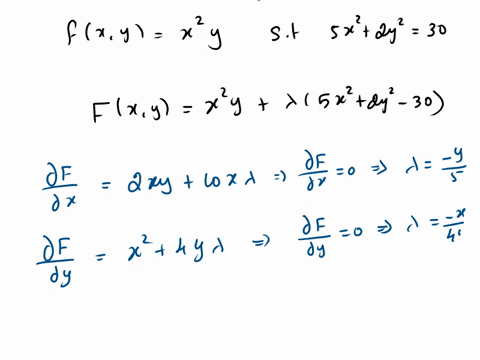 f(x,y) = x²y   s.t   5x²+2y² = 30
F(x,y) = x²y + λ(5x²+2y²-30)
∂F/∂x = 2xy + 10xλ ⇒ ∂F/∂x = 0 ⇒ λ = -y/5
∂F/∂y = x² + 4yλ ⇒ ∂F/∂y = 0 ⇒ λ = -x/4